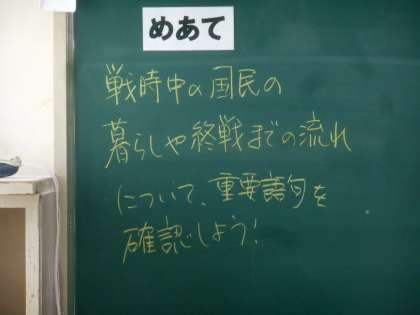 めあて
戦時中の国民の
暮らしや終戦までの流れ
について、重要語句を
確認しよう！